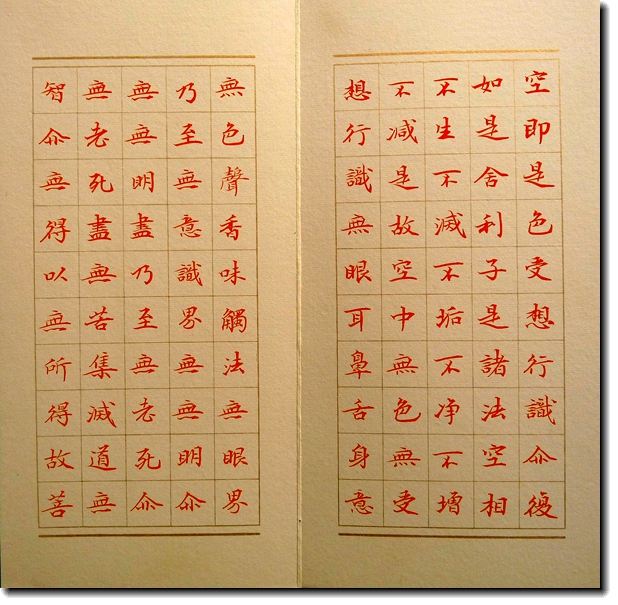 空即是色受想行識亦復
如是舍利子是諸法空相
不生不滅不垢不净不增
不減是故空中無色無受
想行識無眼耳鼻舌身意
無色聲香味觸法無眼界
乃至無意識界無無明亦
無無明盡乃至無老死亦
無老死盡無苦集滅道無
智亦無得以無所得故菩